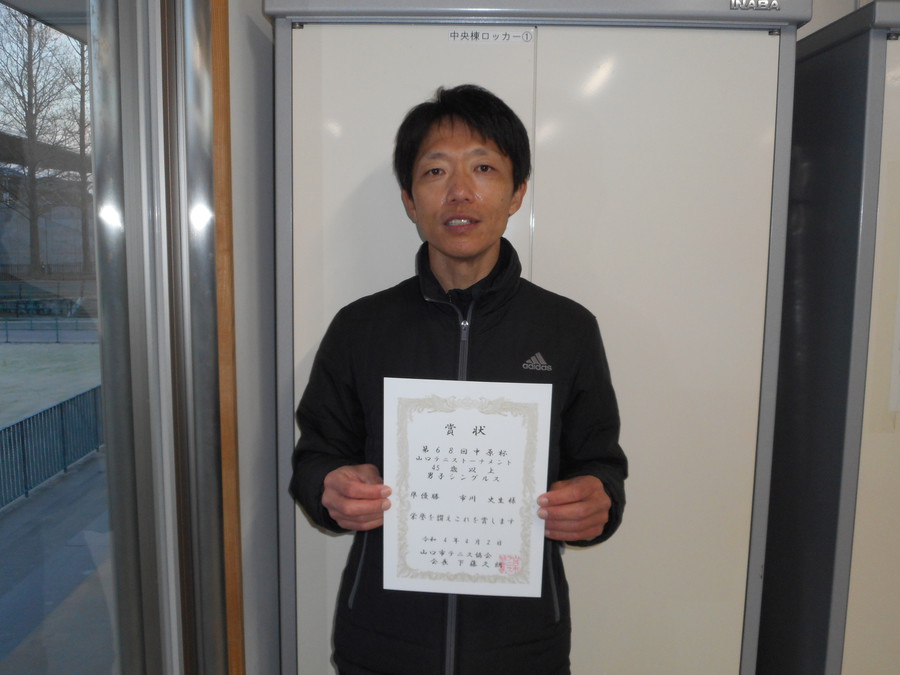 INABA
中央棟ロッカー①
adidas
賞状
第68回中原杯
山口テニストーナメント
45歳以上
男子シングルス
準優勝 市川 史生 様
栄誉を讃えこれを賞します
令和4年4月2日
山口市テニス協会
会長 下藤